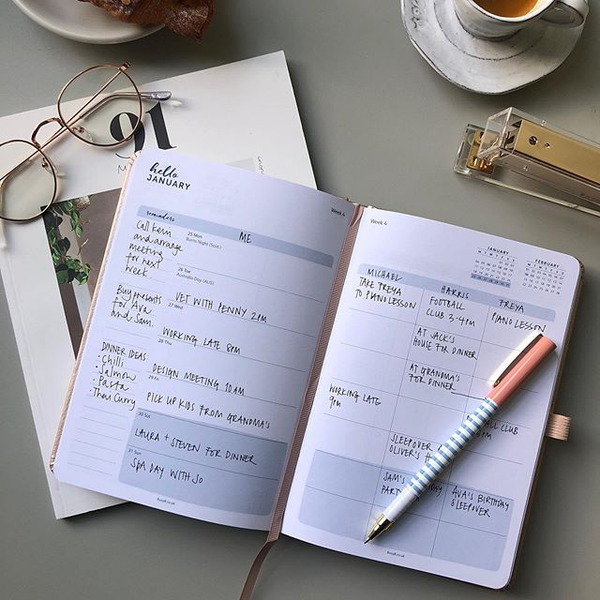 91
hello
JANUARY
Week 4
reminders
Call Kerri
and arrange
meeting
for next
week.
Buy presents
for Ava
and Sam.
DINNER IDEAS:
· Chilli
· Salmon
· Pasta
· Thai Curry
ME
25 Mon
Burns Night (Scot.)
26 Tue
Australia Day (AUS)
27 Wed
VET WITH PENNY 2PM
WORKING LATE 8PM
28 Thu
DESIGN MEETING 10AM
29 Fri
PICK UP KIDS FROM GRANDMA'S
30 Sat
LAURA + STEVEN FOR DINNER
31 Sun
SPA DAY WITH JO
Week 4
JANUARY
FEBRUARY
MICHAEL
HARRIS
FREYA
TAKE FREYA
TO PIANO LESSON
FOOTBALL
CLUB 3-4PM
PIANO LESSON
AT JACK'S
HOUSE FOR DINNER
AT GRANDMA'S
FOR DINNER
WORKING LATE
9PM
CLUB
SLEEPOVER
OLIVER'S
SAM'S
AVA'S BIRTHDAY
SLEEPOVER